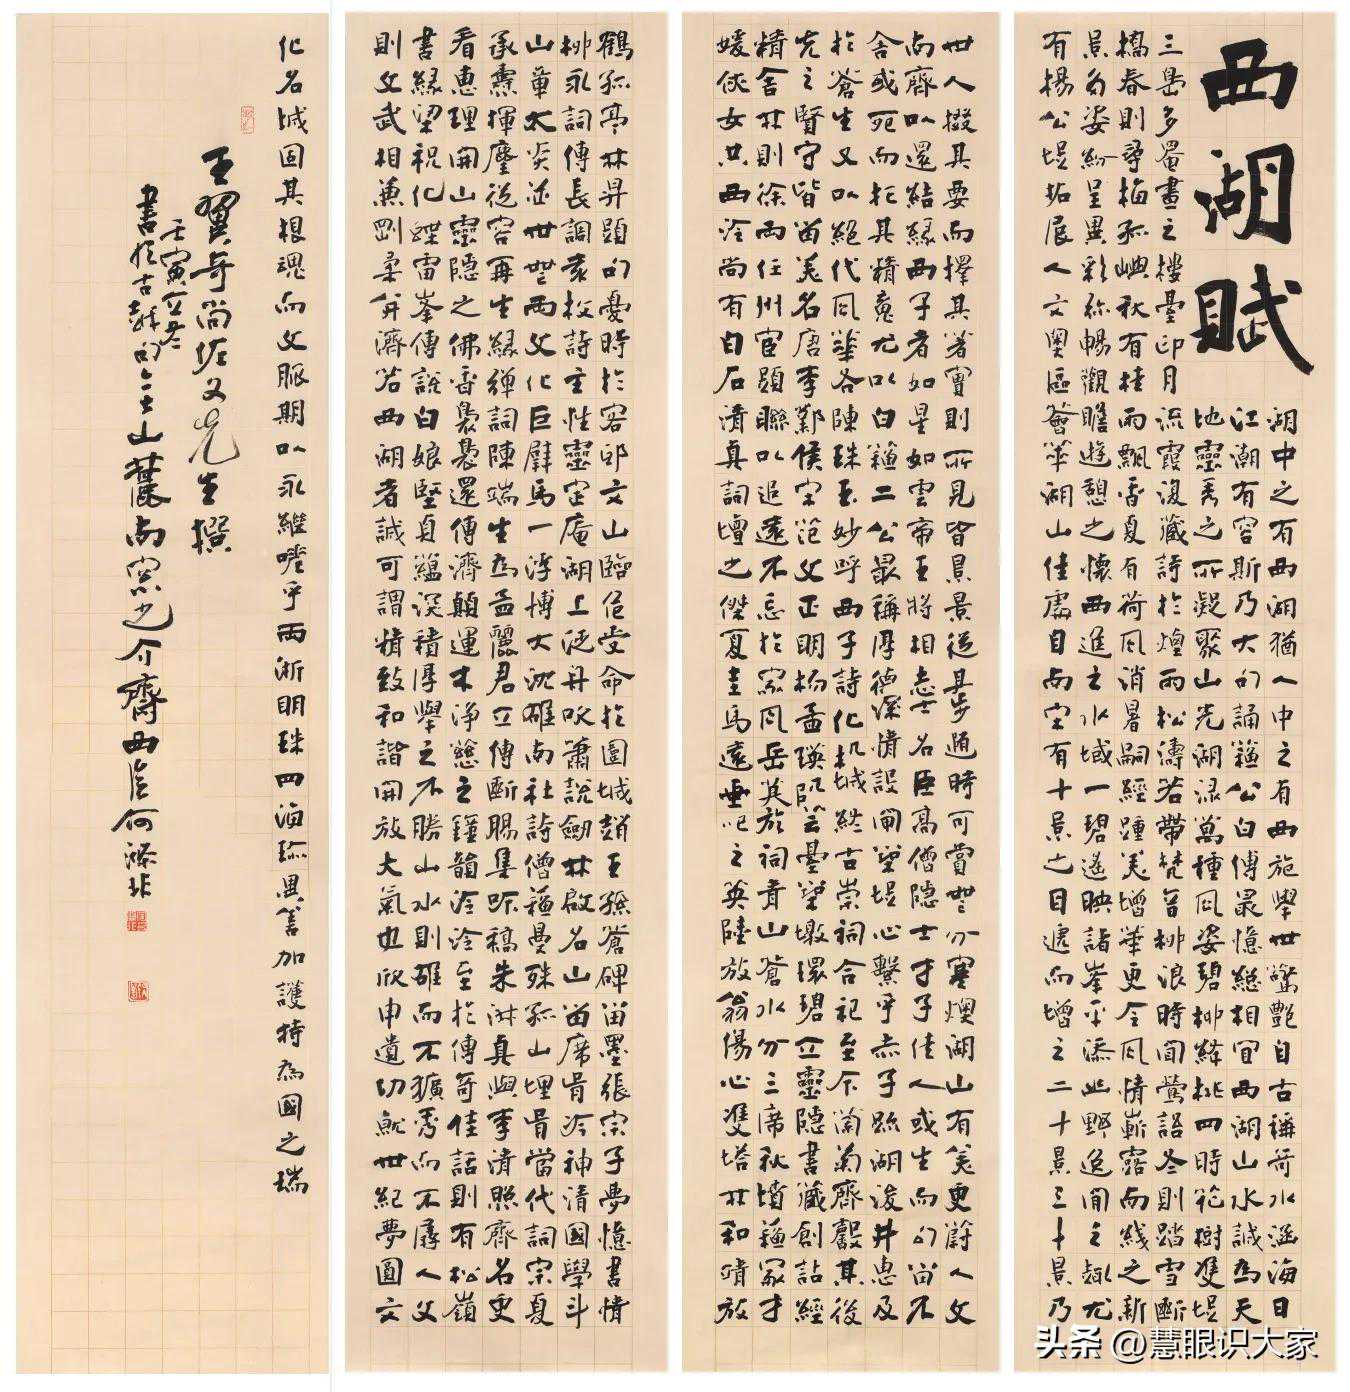 西湖賦
湖中之有西湖猶人中之有西施舉世驚艷自古稱奇水涵海日
江潮有容斯乃大白誦蘇公白傅最憶絕相宜西湖山水誠為天
地靈秀之所凝聚山光湖淥萬種風姿碧柳絳桃四時花樹雙堤
流霞復藏詩於煙雨松濤若帶梵音柳浪時聞鶯語冬則踏雪斷
三島多罨畫之樓臺印月
橋春則尋梅孤嶼秋有桂雨飄香夏有荷風消暑嗣經踵美增華更令風情嶄露而綫之新
景多姿紛呈異彩絲暢觀瞻遊憩之懷西進之水域一碧遙映諸峯平添些野逸閒之趣尤
有楊公堤拓展人文奧區薈萃湖山佳處自南宋有十景之目遞而增之二十景三十景乃
世人掇其要而擇其著實則所見皆是景從其步趨時可賞無分寒燠湖山有美更蔚人文
尚齊以還結緣西子者如星如雲帝王將相志士名臣高僧隱士才子佳人或生而留不
舍或死而托其精魂尤以白蘇二公最稱厚德深情設閘築堤心繫乎赤子疏湖浚井惠及
於蒼生又以絕代風華各陳珠玉妙呼西子詩化杭城終古崇祠合祀至於蘭菊齊馨其後
先之賢守皆留美名唐李鄴侯宋范文正明楊孟瑛阮芸臺築墩環碧立靈隱書藏創詁經
精舍林則徐兩任州宦題聯以追遠不忘於家風岳英於祠青山蒼水分三席秋墳蘇冢才
媛俠女共西泠尚有白石清真詞壇之傑夏圭馬遠畫之英陸放翁傷心雙塔林和靖放
鶴孤亭林昇題句憂時於客邸文山臨危受命於圍城趙王孫蒼碑留墨張宗子夢憶書情
柳永詞傳長調袁枚詩主性靈定庵湖上泛舟吹簫說劍林啟名山留席骨冷神清國學斗
山章太炎並世無兩文化巨擘馬一浮博大沈雄南社詩僧蘇曼殊孤山埋骨當代詞宗夏
承燾揮麈從容再生緣彈詞陳端生為孟麗君立傳斷腸集吟稿朱淑真與李清照齊名更
看惠理開山靈隱之佛香裊裊還傳濟顛運木淨慈之鐘韻泠泠至於傳奇佳話則有松嶺
書緣梁祝化蝶雷峯傳說白娘堅貞蘊深積厚舉之不勝山水則雄而不獷秀而不孱人文
則文武相兼剛柔并濟若西湖者誠可謂精致和諧開放大氣也欣申遺功就世紀夢圓文
化名城固其根魂而文脈期以永繼嗟乎兩浙明珠四海珍異善加護持為國之瑞
王翼奇尚佐文先生撰
壬寅立冬
書於吉祥句人士山麓南窗少介齋西 何滌非
头条 @慧眼识大家